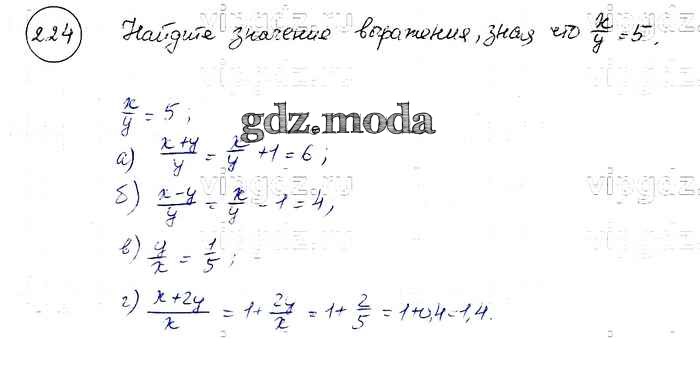 224 Найдите значение выражения, зная что x/y = 5.
x/y = 5;
gdz.moda
а) (x+y)/y = x/y + 1 = 6;
б) (x-y)/y = x/y - 1 = 4,
в) y/x = 1/5;
г) (x+2y)/x = 1 + 2y/x = 1 + 2/5 = 1+0,4=1,4.